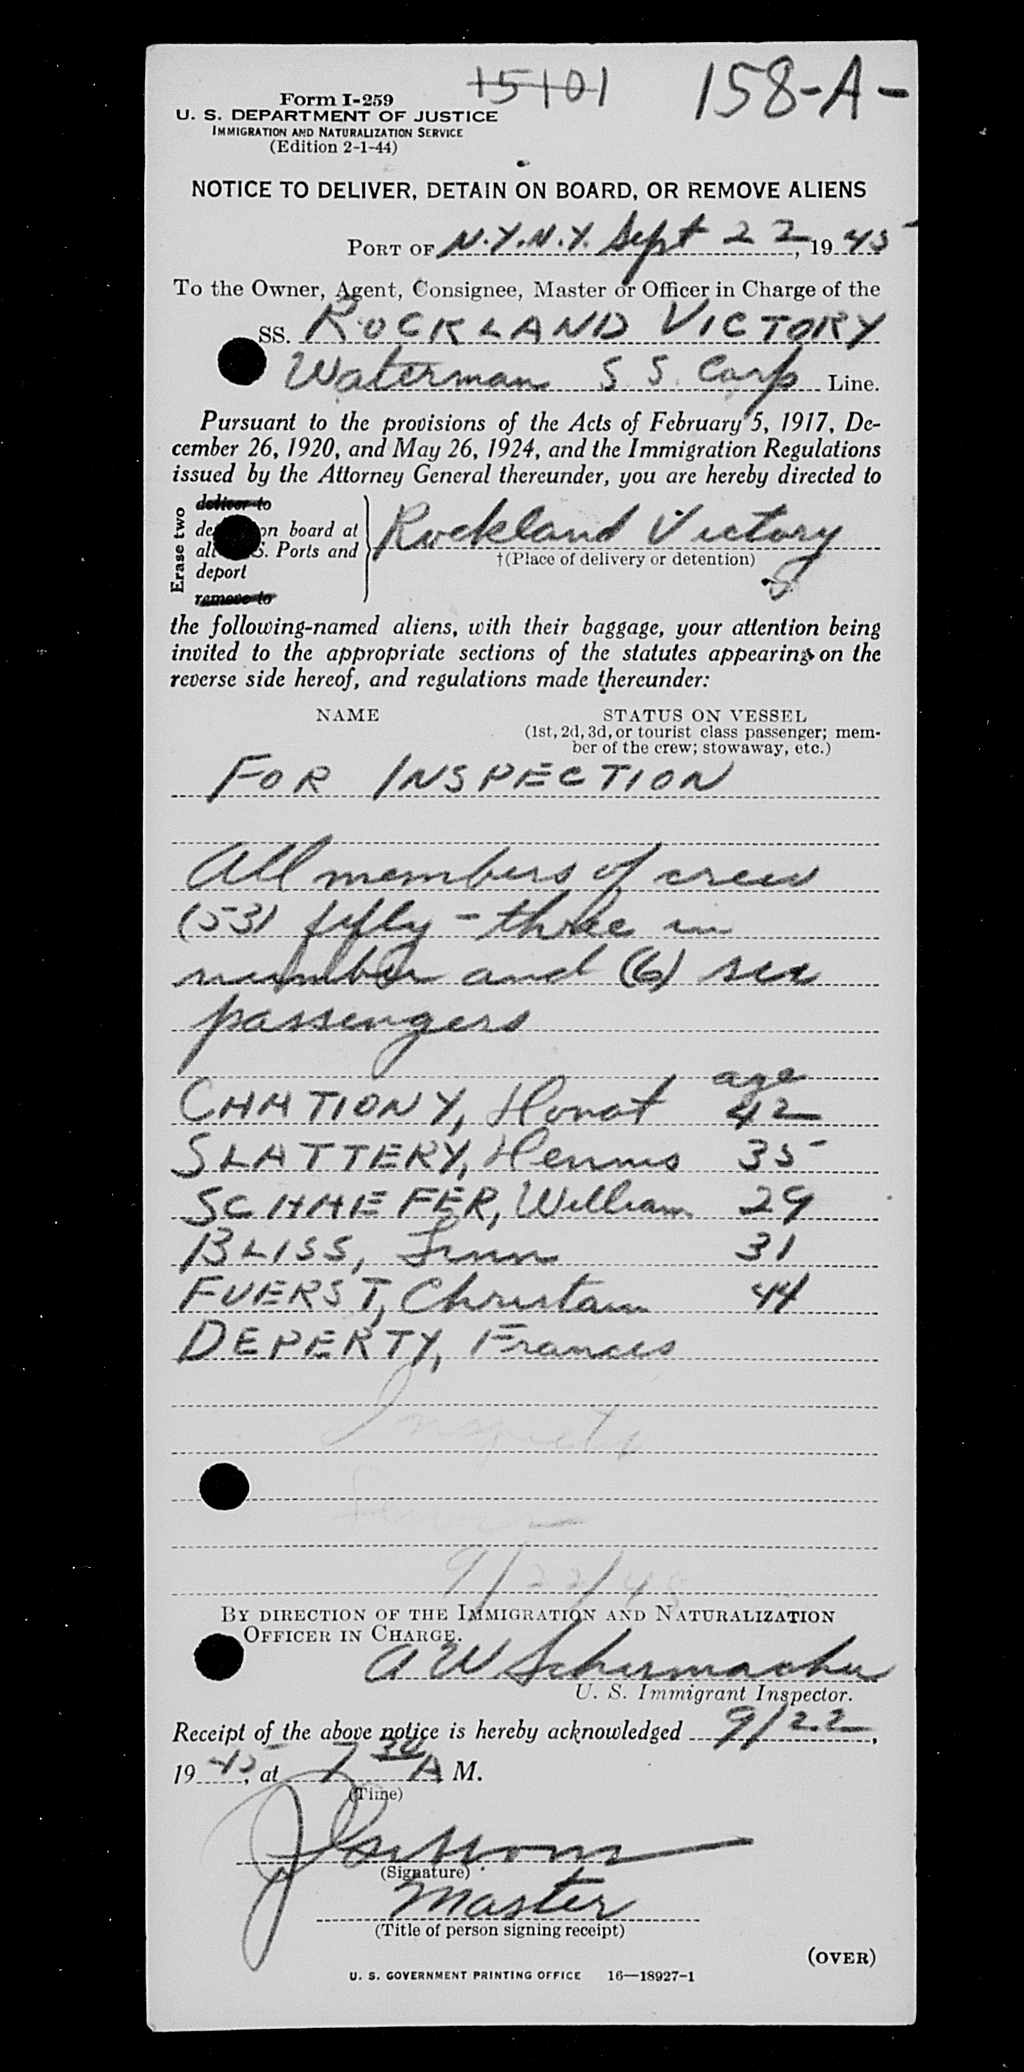 15101 158-A-
Form I-259
U. S. DEPARTMENT OF JUSTICE
IMMIGRATION AND NATURALIZATION SERVICE
(Edition 2-1-44)
NOTICE TO DELIVER, DETAIN ON BOARD, OR REMOVE ALIENS
PORT OF N.Y.N.Y. Sept 22, 1945
To the Owner, Agent, Consignee, Master or Officer in Charge of the
SS. ROCKLAND VICTORY
Waterman S S. Corp Line.
Pursuant to the provisions of the Acts of February 5, 1917, De-
cember 26, 1920, and May 26, 1924, and the Immigration Regulations
issued by the Attorney General thereunder, you are hereby directed to
Erase two
deliver to
de on board at
al S. Ports and
deport
remove to
Rockland Victory
†(Place of delivery or detention)
the following-named aliens, with their baggage, your attention being
invited to the appropriate sections of the statutes appearing on the
reverse side hereof, and regulations made thereunder:
NAME STATUS ON VESSEL
(1st, 2d, 3d, or tourist class passenger; mem-
ber of the crew; stowaway, etc.)
FOR INSPECTION
All members of crew
(53) fifty-three in
number and (6) six
passengers
age
42
SLATTERY, 35
SCHAEFER, William 29
BLISS, 31
FUERST, 44
DEPERTY, Frances
9/22/45
BY DIRECTION OF THE IMMIGRATION AND NATURALIZATION
OFFICER IN CHARGE.
A W Schermacher
U. S. Immigrant Inspector.
Receipt of the above notice is hereby acknowledged 9/22,
1945, at 7 30 A M.
(Time)
(Signature)
Master
(Title of person signing receipt)
(OVER)
U. S. GOVERNMENT PRINTING OFFICE 16—18927-1